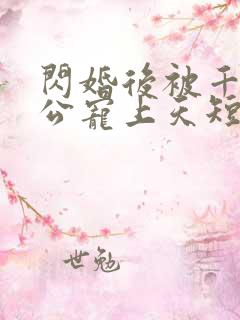 閃婚後被千
公寵上天短
世勉